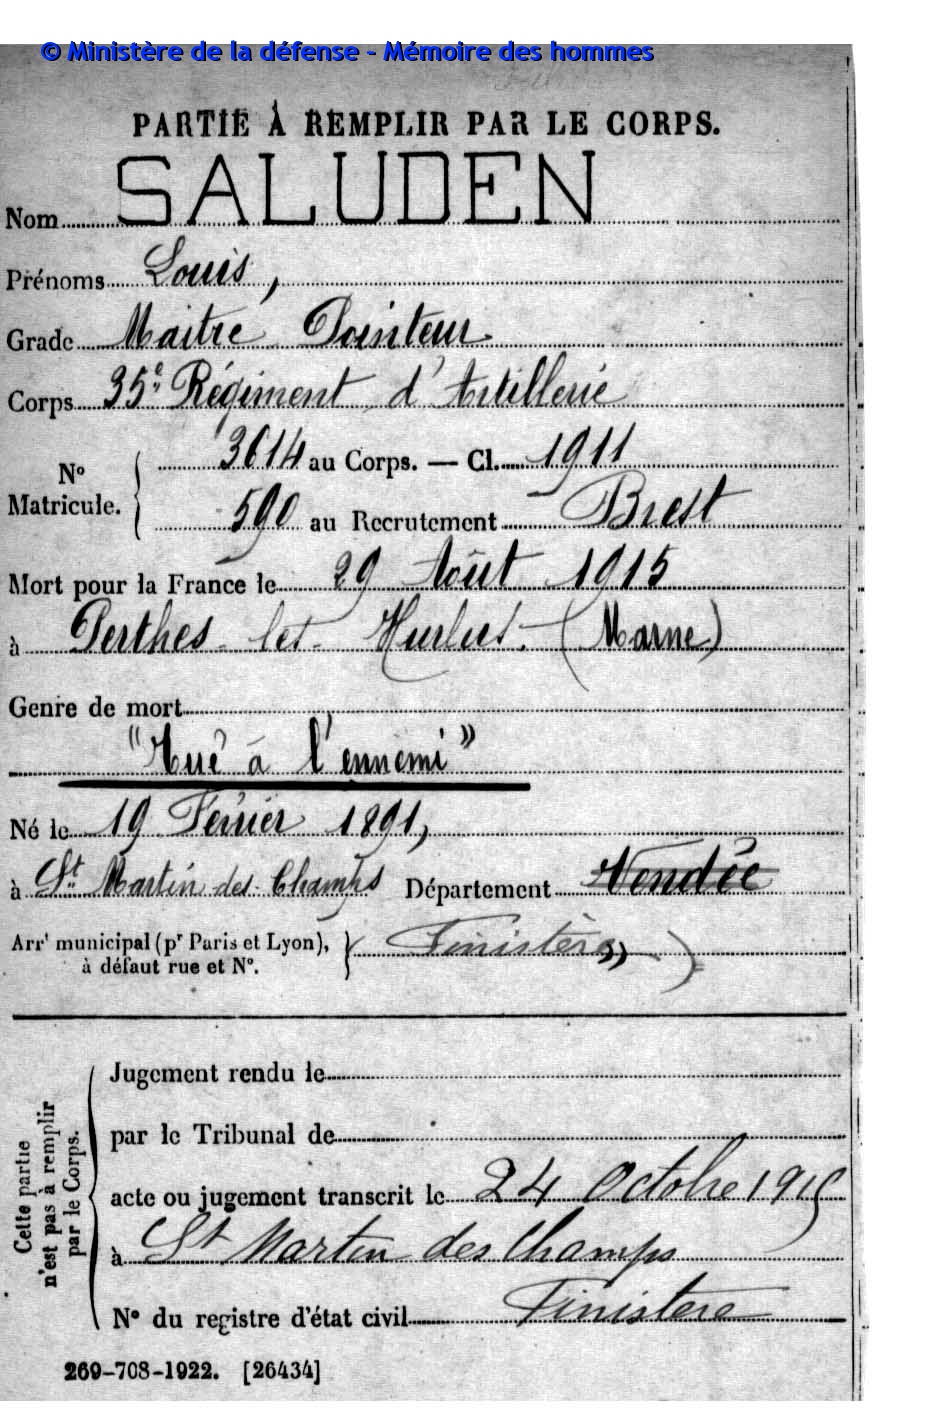 © Ministère de la défense - Mémoire des hommes
PARTIE À REMPLIR PAR LE CORPS.
Nom SALUDEN
Prénoms Louis,
Grade Maitre Pointeur
Corps 35e Régiment d'Artillerie
N° Matricule. { 3614 au Corps. — Cl. 1911
590 au Recrutement Brest
Mort pour la France le 29 Août 1915
à Perthes-les-Hurlus. (Marne)
Genre de mort
"Tué à l'ennemi"
Né le 19 Février 1891,
à St Martin-des-Champs Département Vendée
Arrt municipal (pr Paris et Lyon), à défaut rue et N°. } (Finistère)
Cette partie n'est pas à remplir par le Corps.
Jugement rendu le
par le Tribunal de
acte ou jugement transcrit le 24 Octobre 1915
à St Martin des Champs
N° du registre d'état civil Finistere
269-708-1922. [26434]